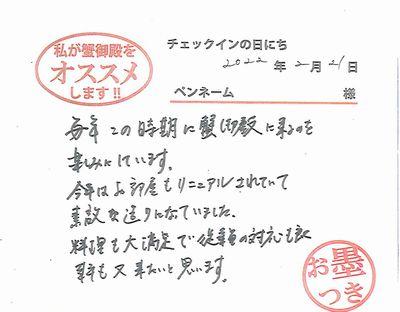 私が蟹御殿を
オススメ
します!!
チェックインの日にち
2022年2月21日
ペンネーム 様
毎年この時期に蟹御殿に来るのを
楽しみにしています。
今年はお部屋もリニアルされていて
素敵な造りになっていました。
料理も大満足で従業員の対応も良く
来年も又来たいと思います。
お墨
つき